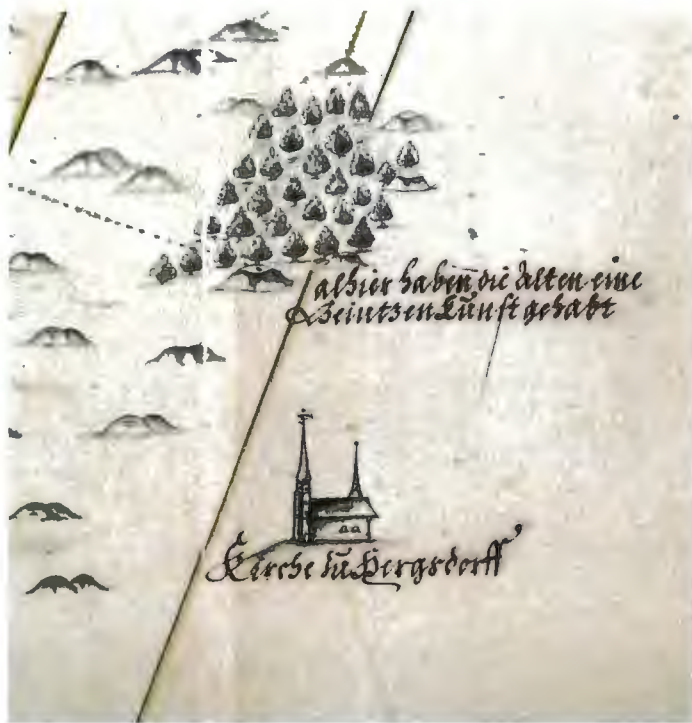 alhier haben die Alten eine
Heintzen Kunst gehabt
Kirche zu Hergsdorff